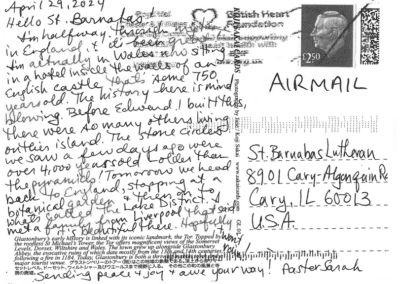 April 29, 2024
Hello St. Barnabas,
I'm halfway through my time
in England, & it's been great.
I'm actually in Wales now, sitting
in a hotel inside the walls of an
English castle that's some 750
years old. The history here is mind
blowing. Before Edward I built this,
there were so many others living
on this island. The stone circles
we saw a few days ago were
over 4,000 years old & older than
the pyramids! Tomorrow we head
back to England, stopping at a
botanical garden & then on to
what's called the Lake District. I
met a family from Liverpool that said
it's beautiful there. Hopefully it
won't
rain!
Sending peace & joy & awe your way! Pastor Sarah
British Heart
Foundation
£2.50
AIRMAIL
St. Barnabas Lutheran
8901 Cary-Algonquin Rd
Cary, IL 60013
U.S.A.
Glastonbury's early history is linked with its iconic landmark, the Tor. Topped by
the roofless St Michael's Tower, the Tor offers magnificent views of the Somerset
Levels, Dorset, Wiltshire and Wales. The town grew up alongside Glastonbury
Abbey, the evocative ruins of which date mostly from the 13th and 14th centuries
following a fire in 1184. Today, Glastonbury is both a destination for and a
major tourist venue.